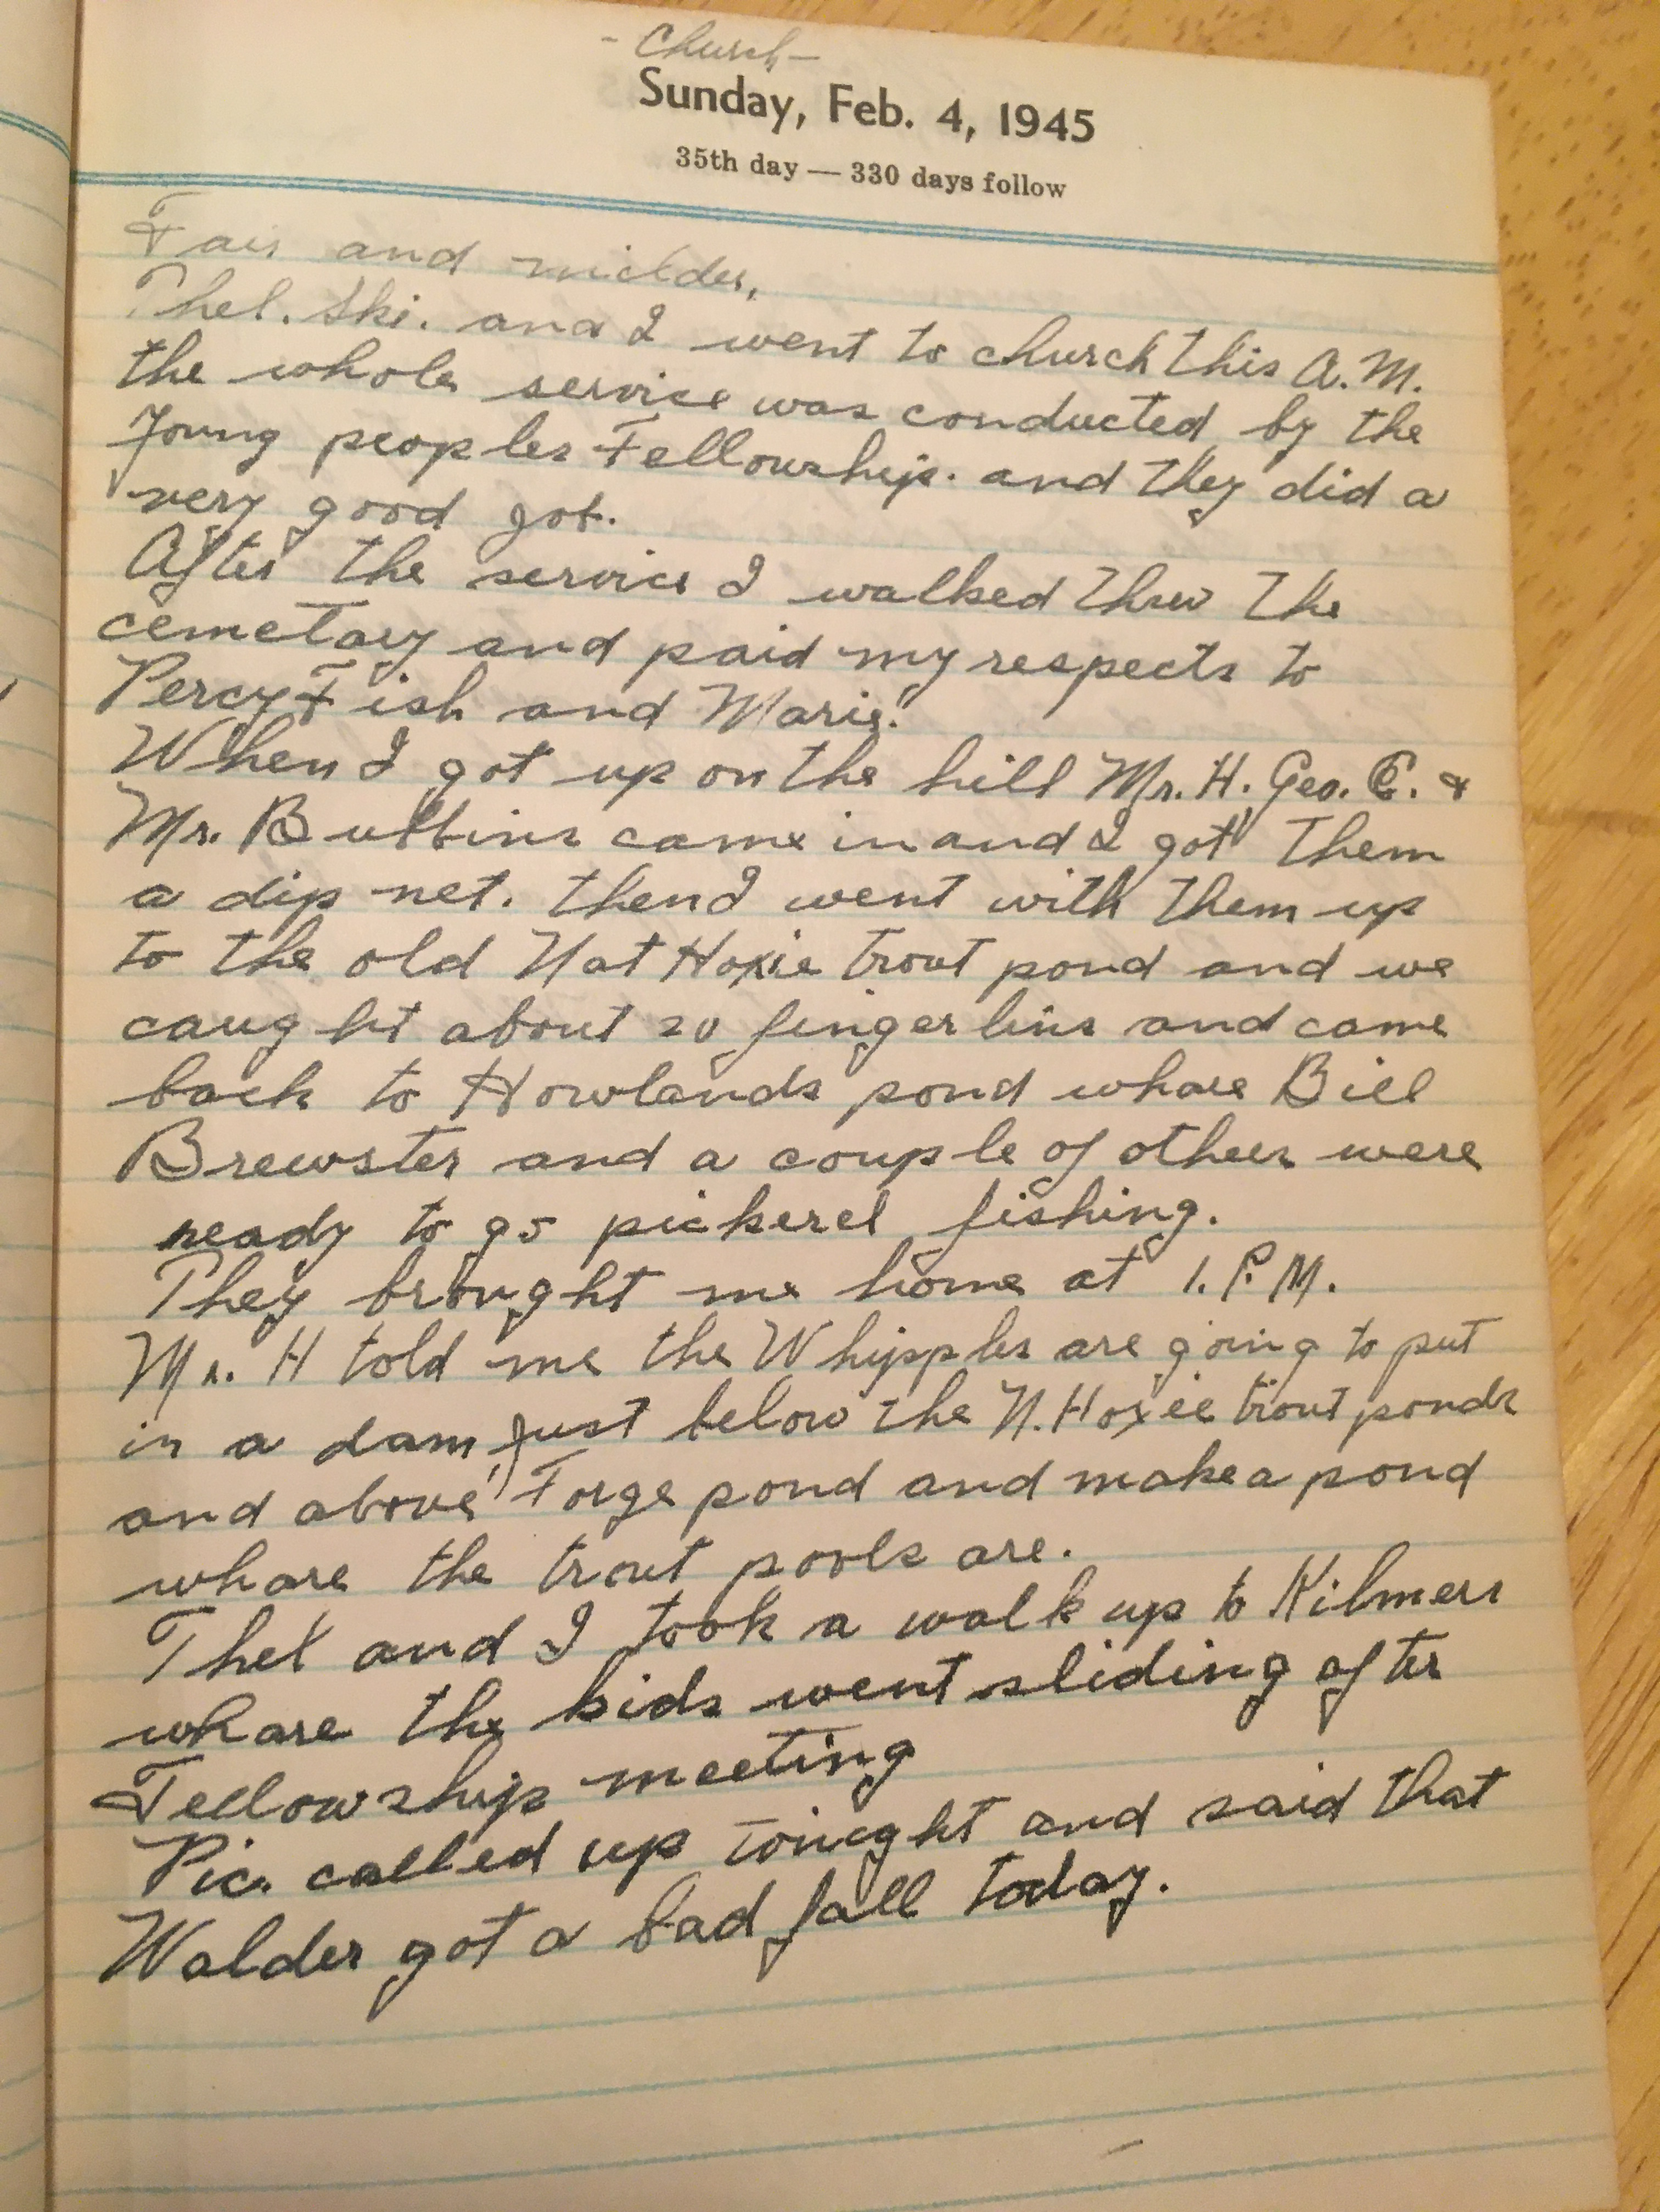 - Church -
Sunday, Feb. 4, 1945
35th day — 330 days follow
Fair and milder,
Thel. Ski. and I went to church this A.M.
the whole service was conducted by the
Young peoples Fellowship. and they did a
very good job.
After the service I walked threw the
cemetary and paid my respects to
Percy Fish and Marie.
When I got up on the hill Mr. H. Geo. C. &
Mr. came in and I got them
a dip net. then I went with them up
to the old Nat Hoxie trout pond and we
caught about 20 fingerlins and came
back to Howlands pond whare Bill
Brewster and a couple of others were
ready to go pickerel fishing.
They brought me home at 1. P.M.
Mr. H told me the Whipples are going to put
in a dam, just below the N. Hoxie trout ponds
and above Forge pond and make a pond
whare the trout pools are.
Thel and I took a walk up to Kilmers
whare the kids went sliding after
Fellowship meeting
Pic. called up tonight and said that
Walder got a bad fall today.